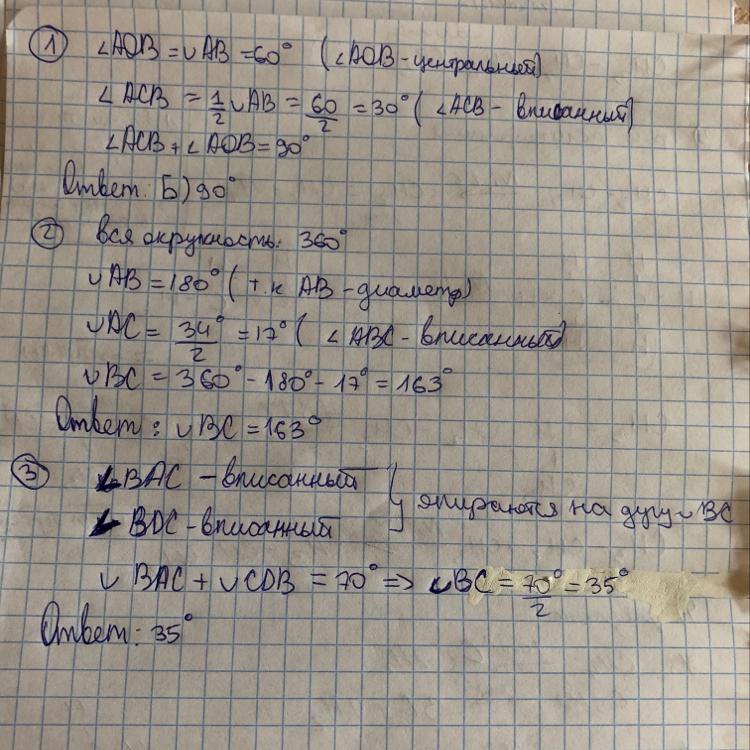 ① ∠AOB = ◡AB = 60° (∠AOB - центральный)
∠ACB = 1/2 ◡AB = 60/2 = 30° (∠ACB - вписанный)
∠ACB + ∠AOB = 90°
Ответ: Б) 90°
② вся окружность: 360°
◡AB = 180° (т.к AB - диаметр)
◡AC = 34°/2 = 17° (∠ABC - вписанный)
◡BC = 360° - 180° - 17° = 163°
Ответ: ◡BC = 163°
③ ∠BAC - вписанный
∠BDC - вписанный } опираются на дугу ◡BC
◡BAC + ◡CDB = 70° => ◡BC = 70°/2 = 35°
Ответ: 35°